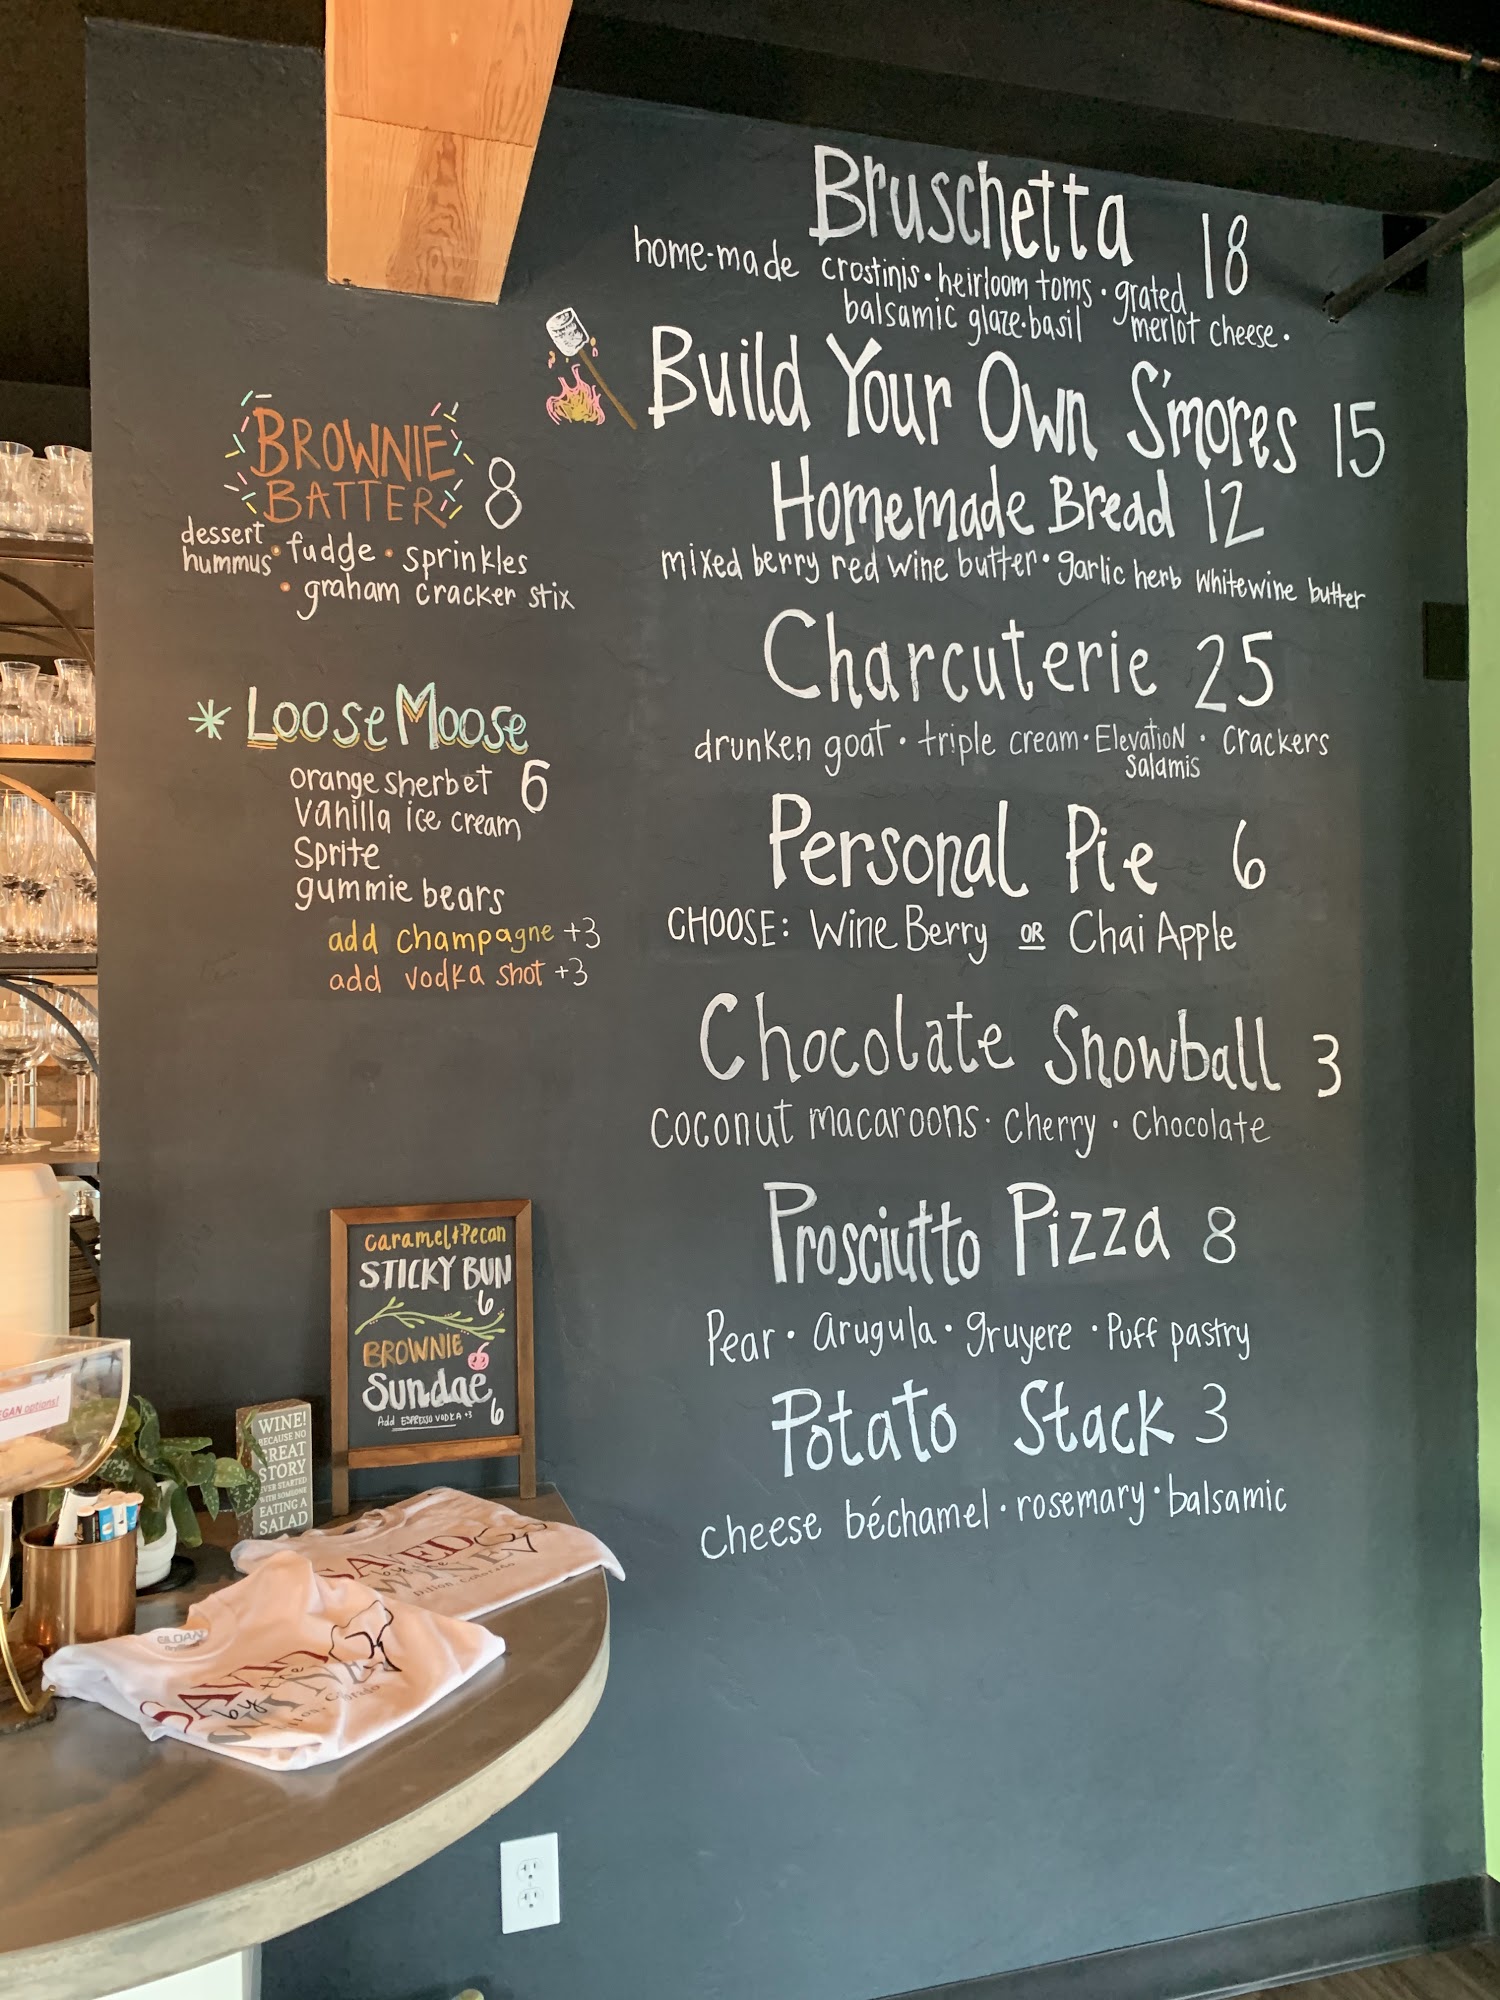 Bruschetta 18
home-made crostinis • heirloom toms • grated
balsamic glaze • basil merlot cheese •
Build Your Own S'mores 15
Homemade Bread 12
mixed berry red wine butter • garlic herb white wine butter
Charcuterie 25
drunken goat • triple cream • Elevation • crackers
salamis
Personal Pie 6
CHOOSE: Wine Berry OR Chai Apple
Chocolate Snowball 3
coconut macaroons • cherry • chocolate
Prosciutto Pizza 8
Pear • arugula • gruyere • Puff pastry
Potato Stack 3
cheese béchamel • rosemary • balsamic
BROWNIE
BATTER 8
dessert
hummus • fudge • sprinkles
• graham cracker stix
* Loose Moose
orange sherbet 6
vanilla ice cream
Sprite
gummie bears
add champagne +3
add vodka shot +3
caramel + Pecan
STICKY BUN
6
BROWNIE
Sundae
Add ESPRESSO VODKA +3 6
WINE!
BECAUSE NO
GREAT
STORY
EVER STARTED
WITH SOMEONE
EATING A
SALAD
VEGAN options!
SAVED
by the
WINE
Dillon, Colorado
GILDAN
SAVED
by the
WINE
Dillon, Colorado